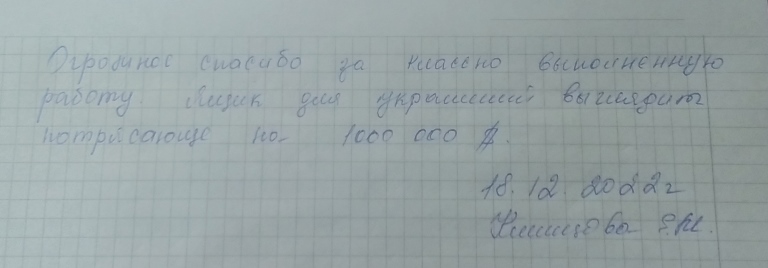 Огромное спасибо за классно выполненную
работу. Ящик для украшений выглядит
потрясающе на 1000 000 $.
18.12.2022г